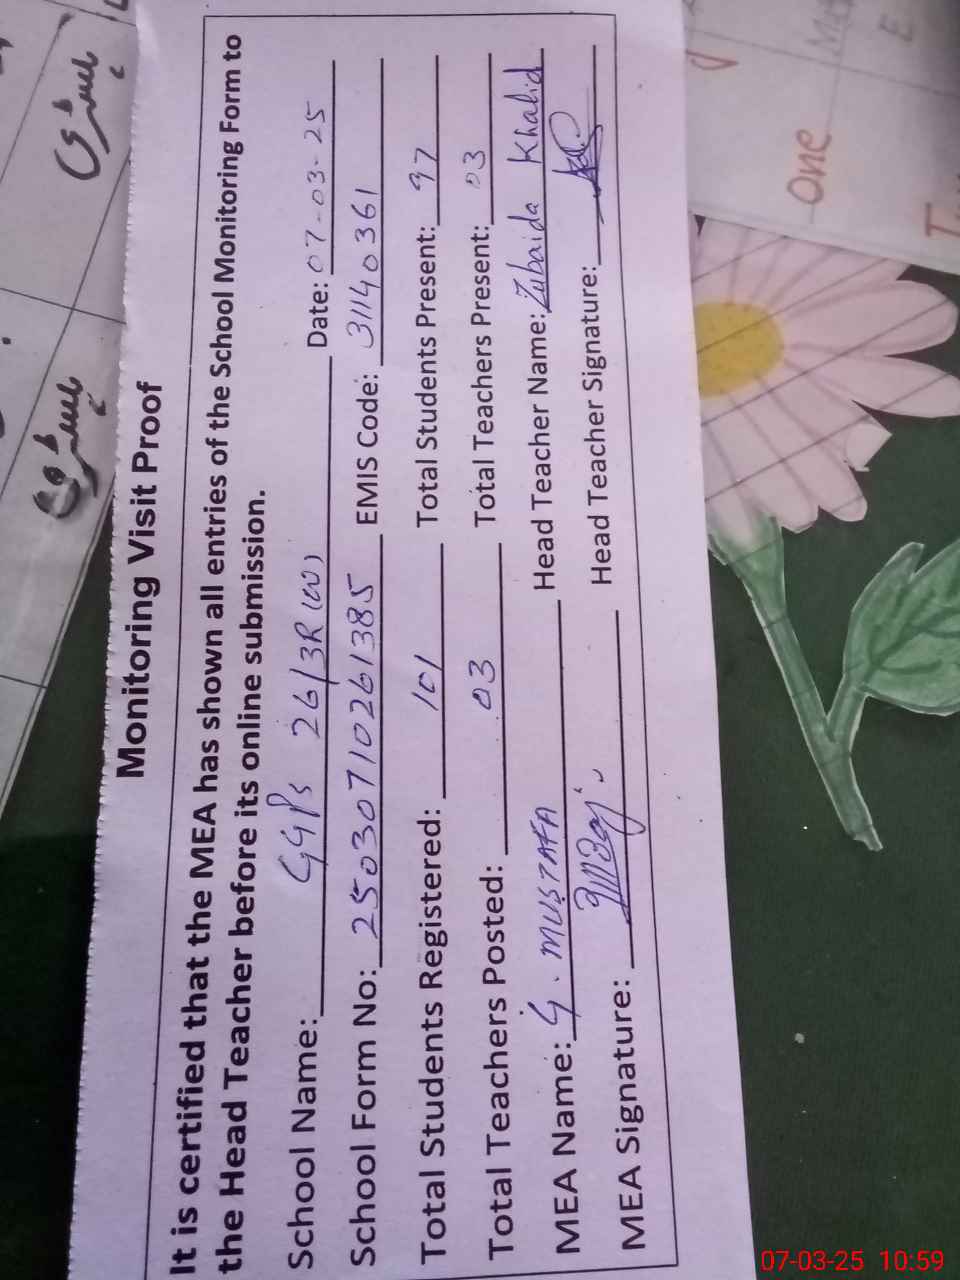 Monitoring Visit Proof
It is certified that the MEA has shown all entries of the School Monitoring Form to
the Head Teacher before its online submission.
School Name: GGPS 26/3R (W) Date: 07-03-25
School Form No: 25030710261385 EMIS Code: 31140361
Total Students Registered: 101 Total Students Present: 97
Total Teachers Posted: 03 Total Teachers Present: 03
MEA Name: G. MUSTAFA Head Teacher Name: Zubaida Khalid
MEA Signature: Head Teacher Signature:
One
07-03-25 10:59